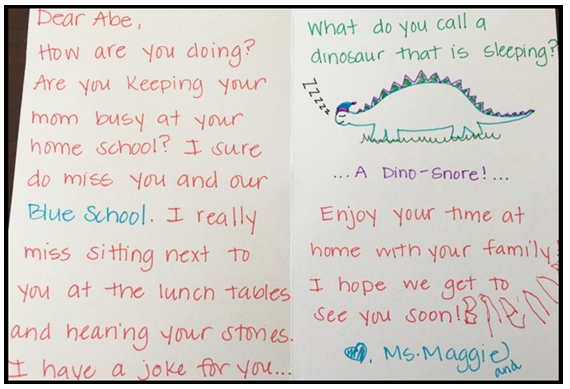 Dear Abe,
How are you doing?
Are you keeping your
mom busy at your
home school? I sure
do miss you and our
Blue School. I really
miss sitting next to
you at the lunch tables
and hearing your stories.
I have a joke for you...
What do you call a
dinosaur that is sleeping?
ZZzzz
...A Dino-Snore!...
Enjoy your time at
home with your family!
I hope we get to
see you soon!
Ms. Maggie
and